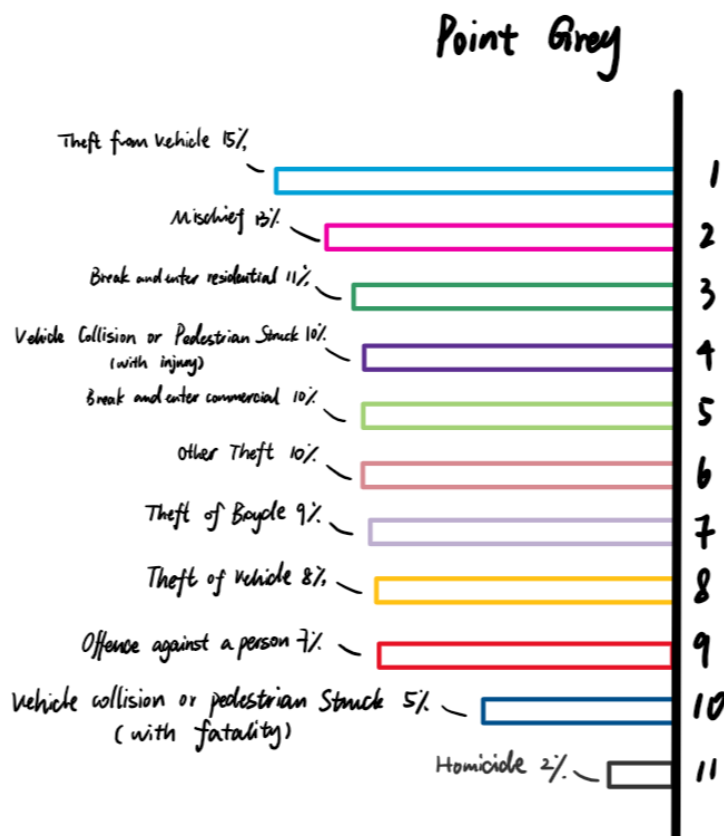 Point Grey
Theft from vehicle 15%
1
Mischief 13%
2
Break and enter residential 11%
3
Vehicle Collision or Pedestrian Struck 10%
(with injury)
4
Break and enter commercial 10%
5
Other Theft 10%
6
Theft of Bicycle 9%
7
Theft of vehicle 8%
8
Offence against a person 7%
9
Vehicle collision or pedestrian Struck 5%
(with fatality)
10
Homicide 2%
11